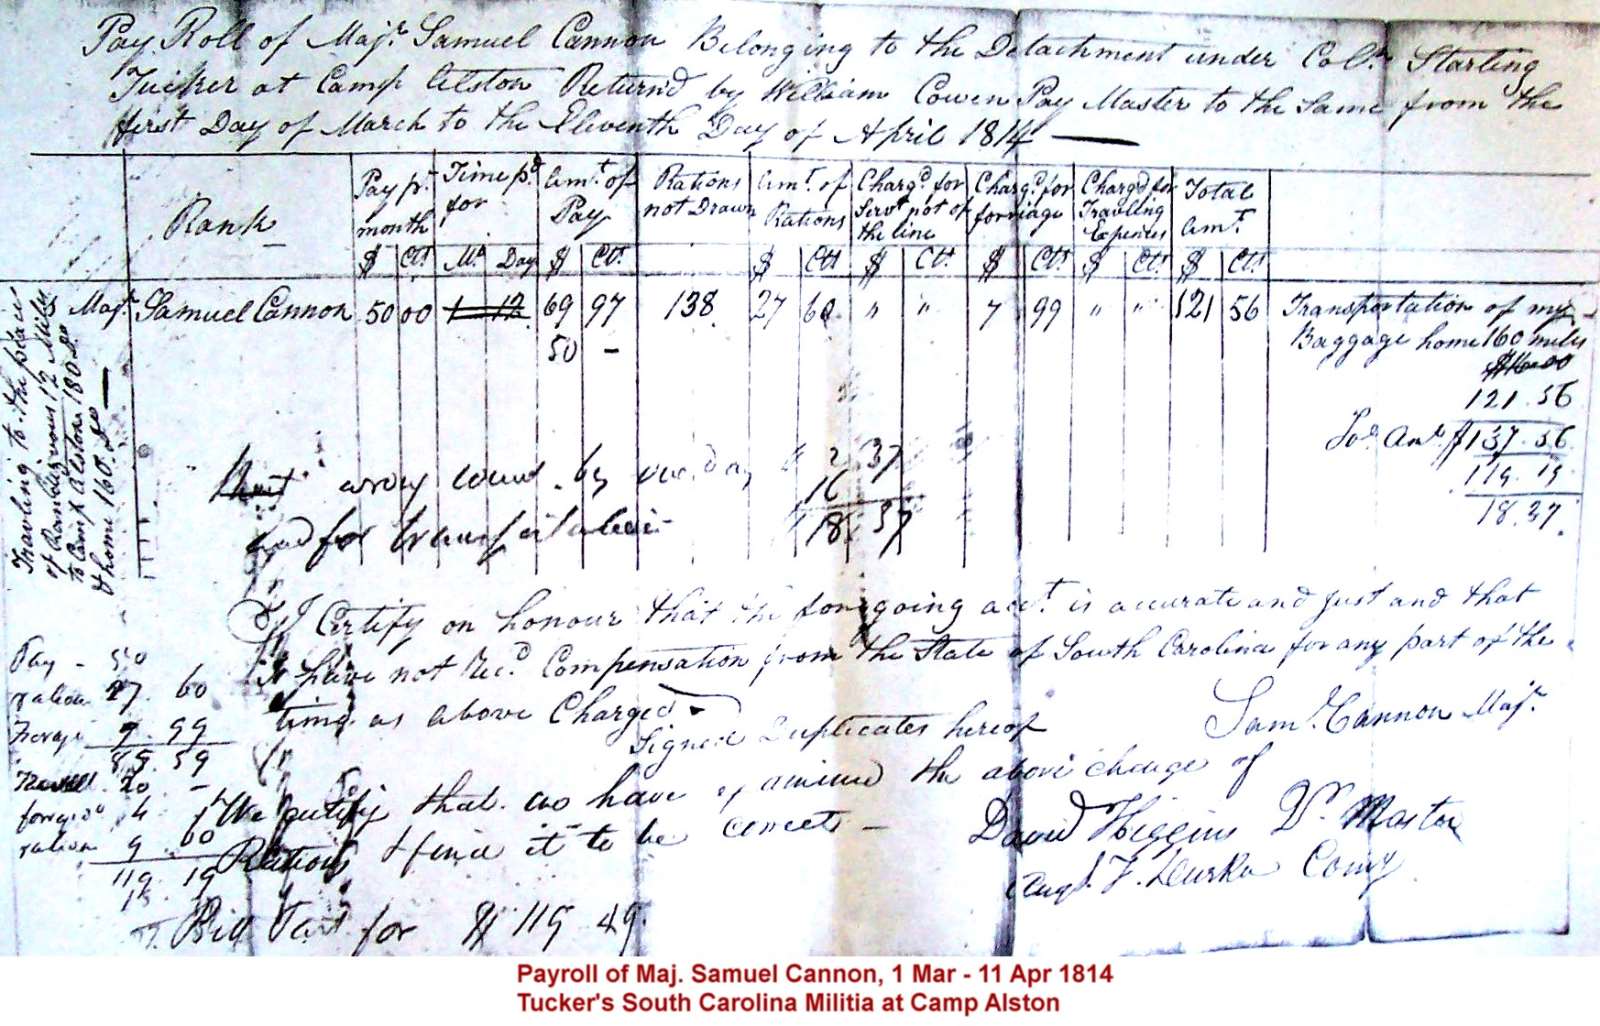 Pay Roll of Majr. Samuel Cannon Belonging to the Detachment under Coln. Starling
Tucker at Camp Alston Returnd by William Cowen Pay Master to the Same from the
first Day of March to the Eleventh Day of April 1814
Rank
Pay pr. month $ Cts
Time pd for Mo Day
Amt. of Pay $ Cts.
Rations not Drawn
Amt. of Rations $ Cts
Chargd for Servt not of the line $ Cts.
Chargd for forriage $ Cts
Chargd for Travling Expences $ Cts
Total Amt. $ Cts
Majr. Samuel Cannon 50 00 1 12 69 97 138 27 60 " " 7 99 " " 121 56 Transportation of my
Baggage home 160 miles
50 -
$16.00
121.56
$137.56
119.19
18.37
Travling to the place
of Randezvous 12 Mils
to Camp Alston 180 do
& home 160 do
wrong by 2.37
16
and for 18.37
I Certify on honour that the foregoing act. is accurate and just and that
I have not Recd. Compensation from the State of South Carolina for any part of the
time as above Charged
Signed Duplicates hereof
Saml. Cannon Majr.
Pay - 50
ration 27.60
Forage 7.99
85.59
20. -
4
ration 9.60
119.19
We certify that we have examined the above charge of
Rations & find it to be correct -
David Higgins Qr. Master
Comy
Bill for $ 119.49
Payroll of Maj. Samuel Cannon, 1 Mar - 11 Apr 1814
Tucker's South Carolina Militia at Camp Alston